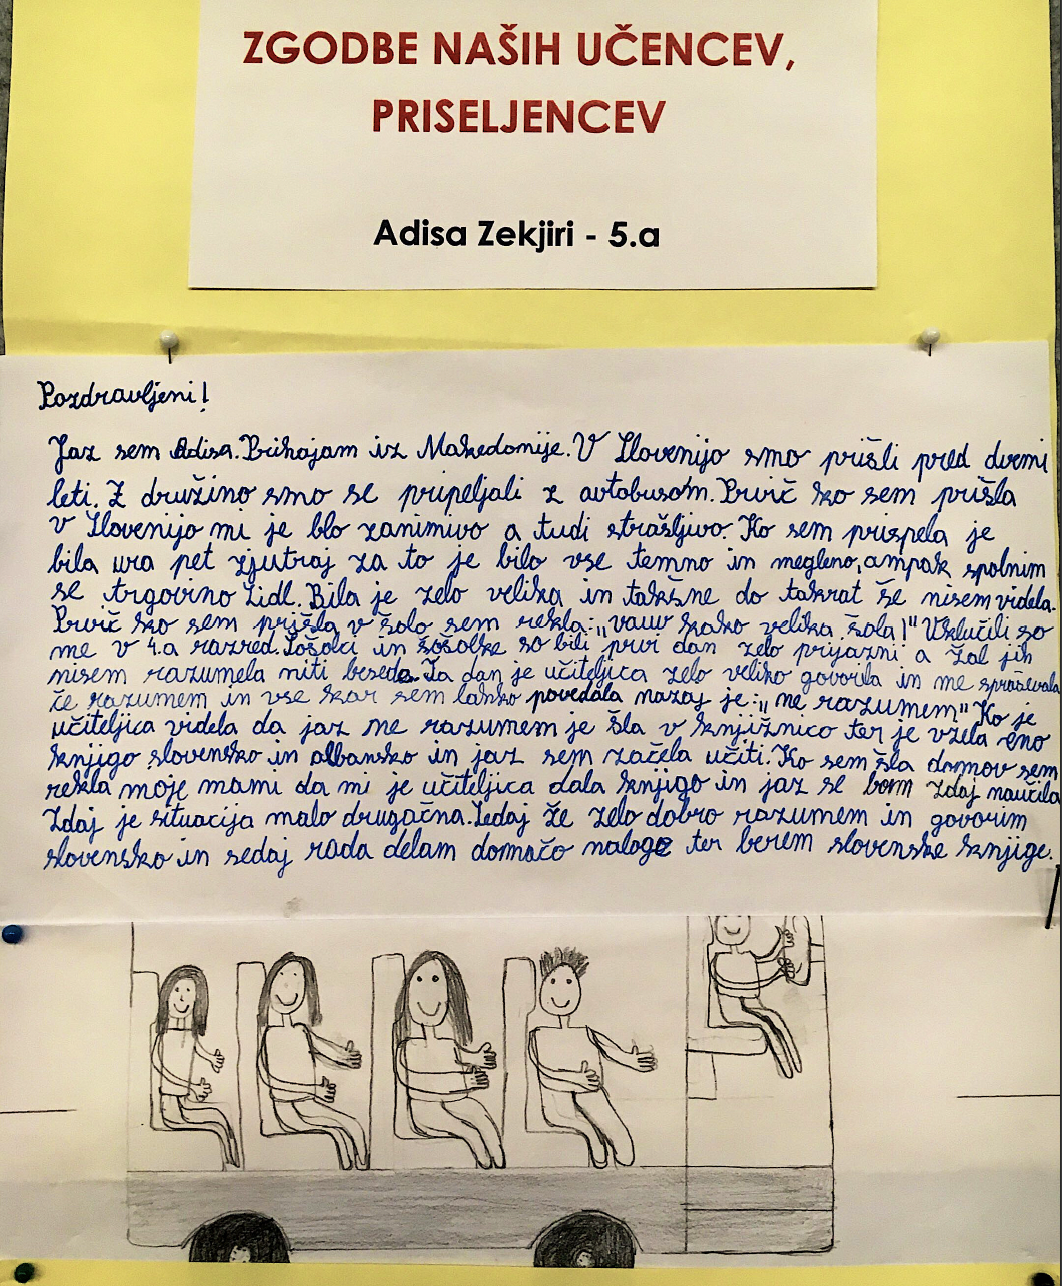 ZGODBE NAŠIH UČENCEV,
PRISELJENCEV
Adisa Zekjiri - 5.a
Pozdravljeni!
Jaz sem Adisa. Prihajam iz Makedonije. V Slovenijo smo prišli pred dvemi
leti. Z družino smo se pripeljali z avtobusom. Prvič ko sem prišla
v Slovenijo mi je blo zanimivo a tudi strašljivo. Ko sem prispela je
bila ura pet zjutraj za to je bilo vse temno in megleno, ampak spolnim
se trgovino Lidl. Bila je zelo velika in takšne do takrat še nisem videla.
Prvič ko sem prišla v šolo sem rekla: „vauw kako velika šola!" Vključili so
me v 4.a razred. Sošolci in sošolke so bili prvi dan zelo prijazni a žal jih
nisem razumela niti besede. Ta dan je učiteljica zelo veliko govorila in me spraševala
če razumem in vse kar sem lahko povedala nazaj je: „ne razumem" Ko je
učiteljica videla da jaz ne razumem je šla v knjižnico ter je vzela eno
knjigo slovensko in albansko in jaz sem začela učiti. Ko sem šla domov sem
rekla moje mami da mi je učiteljica dala knjigo in jaz se bom zdaj naučila
Zdaj je situacija malo drugačna. Sedaj že zelo dobro razumem in govorim
slovensko in sedaj rada delam domačo nalogo ter berem slovenske knjige.